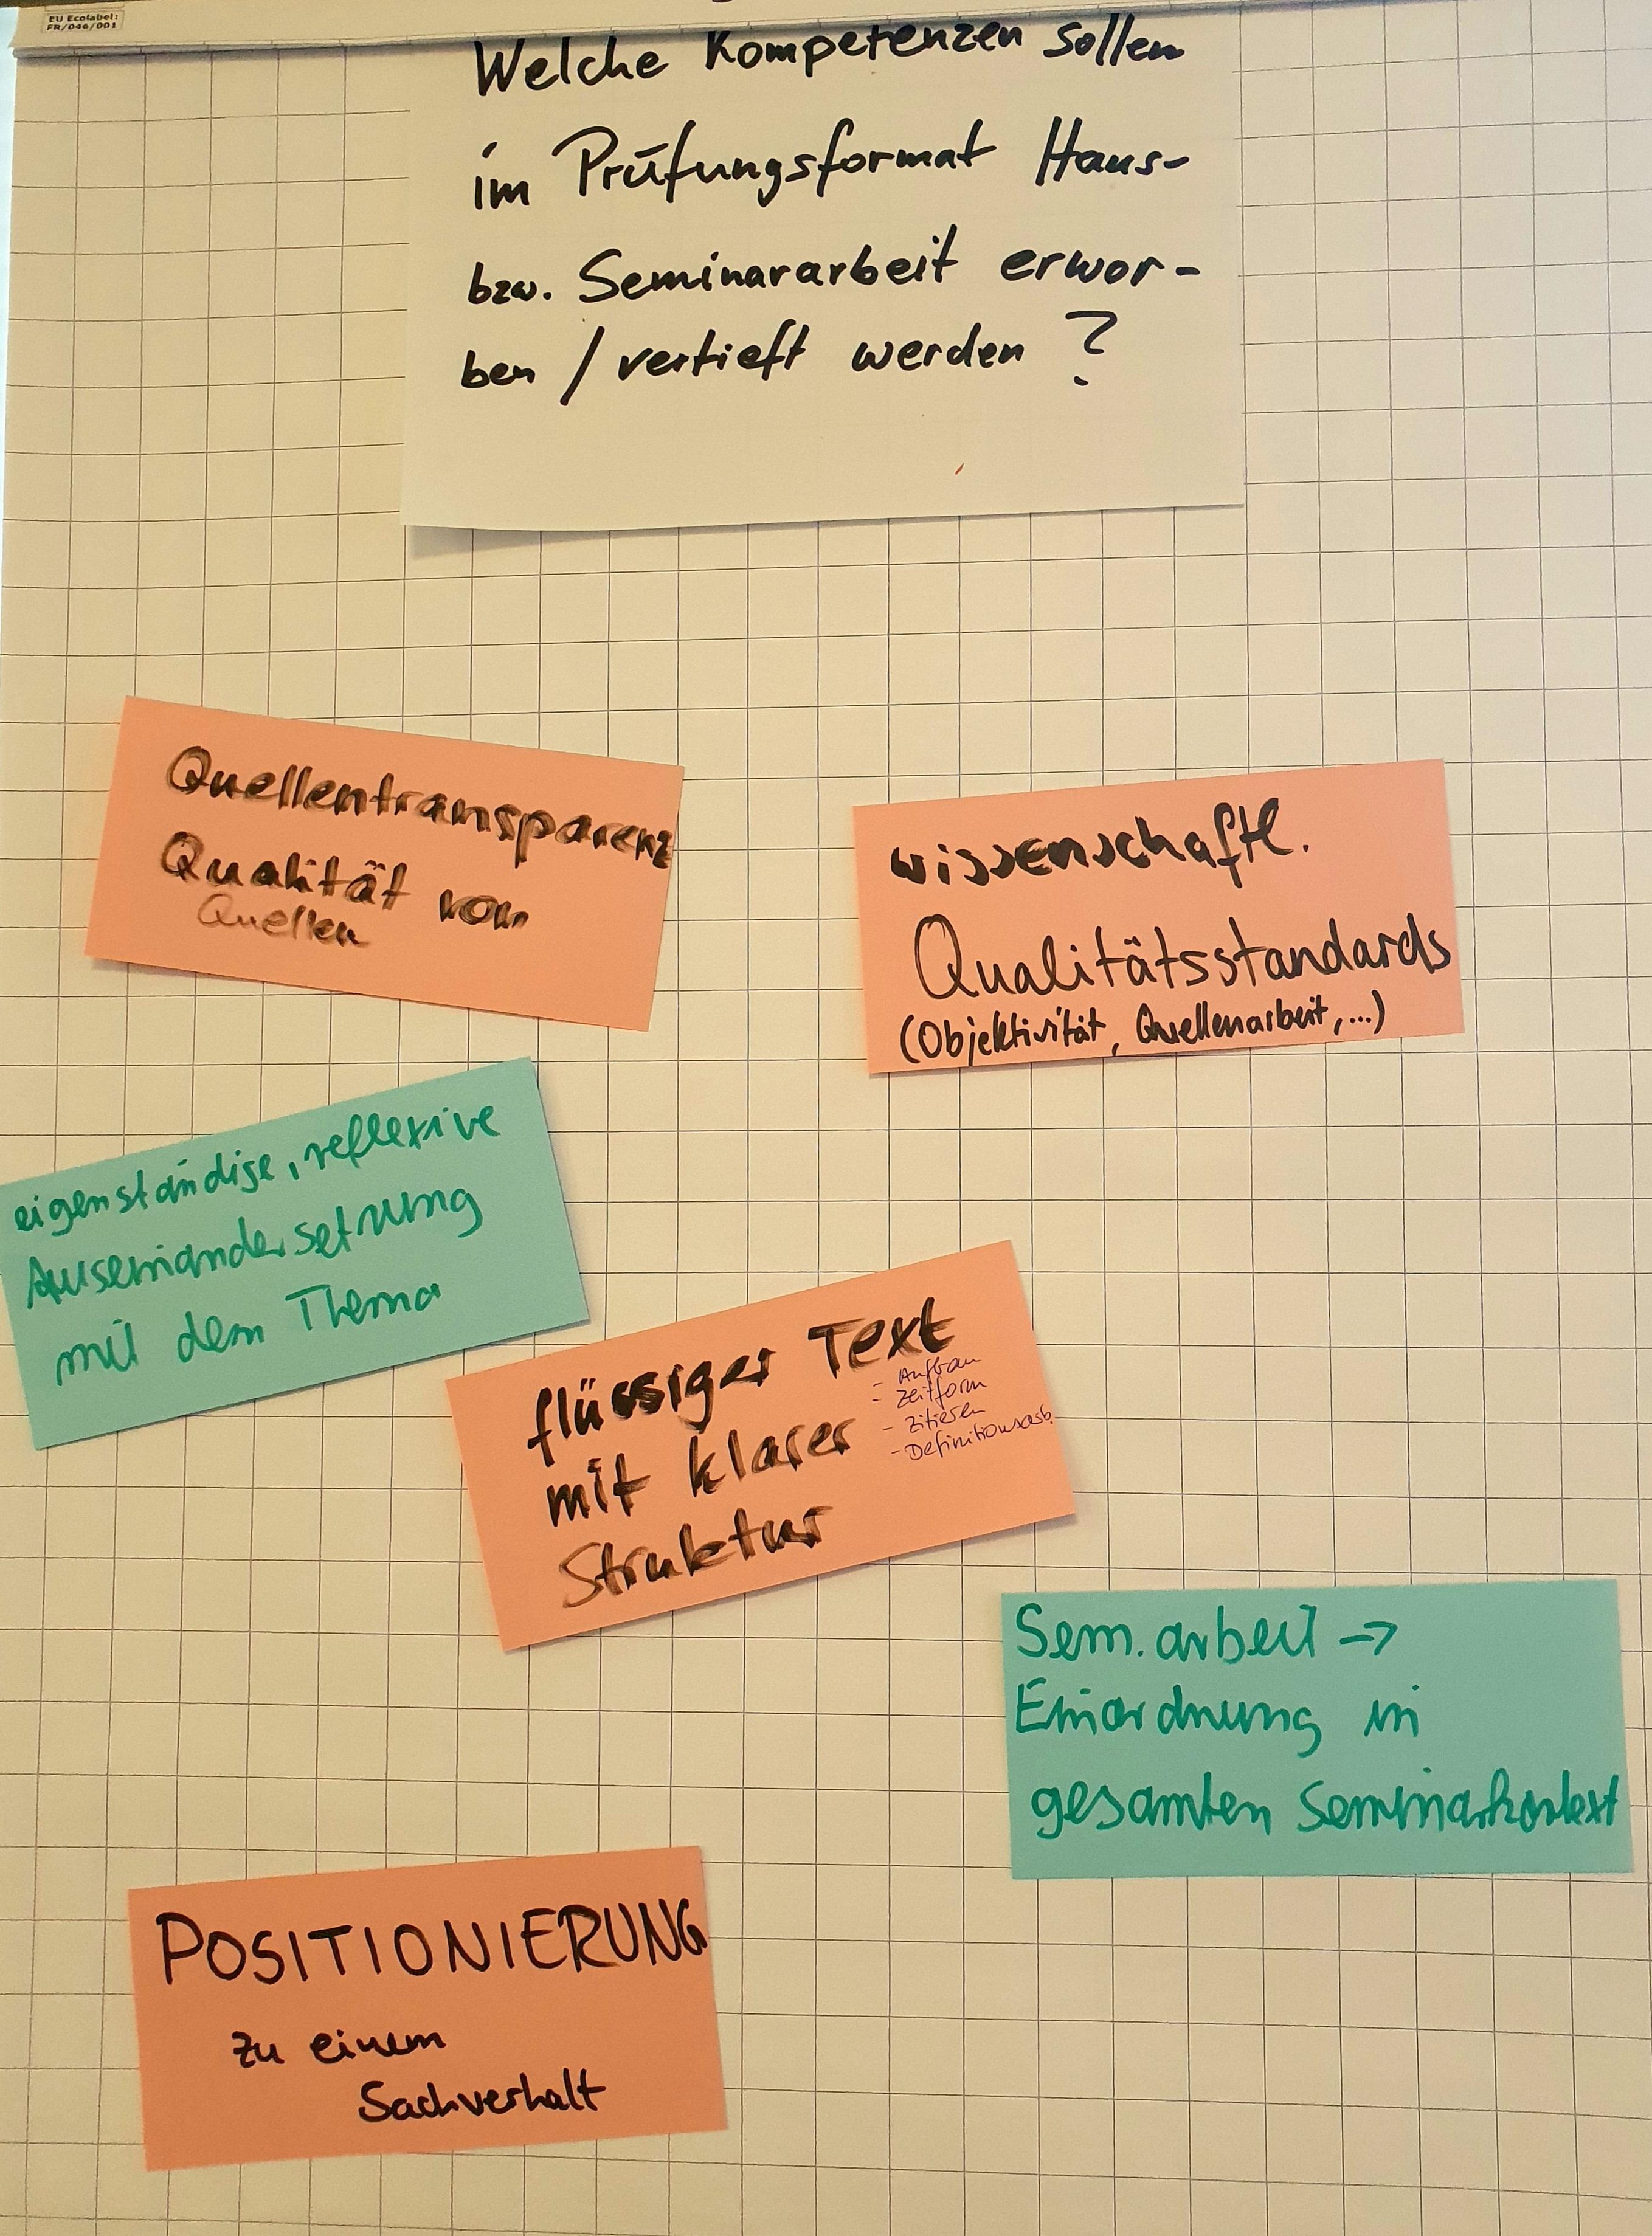 EU Ecolabel:
FR/046/001
Welche Kompetenzen sollen
im Prüfungsformat Haus-
bzw. Seminararbeit erwor-
ben / vertieft werden ?
Quellentransparenz
Qualität von
Quellen
wissenschaftl.
Qualitätsstandards
(Objektivität, Quellenarbeit, ...)
eigenständige, reflexive
Auseinandersetzung
mit dem Thema
flüssiger Text
mit klarer
Struktur
- Aufbau
- Zeitform
- Zitieren
- Definitionsarb.
Sem.arbeit →
Einordnung in
gesamten Seminarkontext
POSITIONIERUNG
zu einem
Sachverhalt